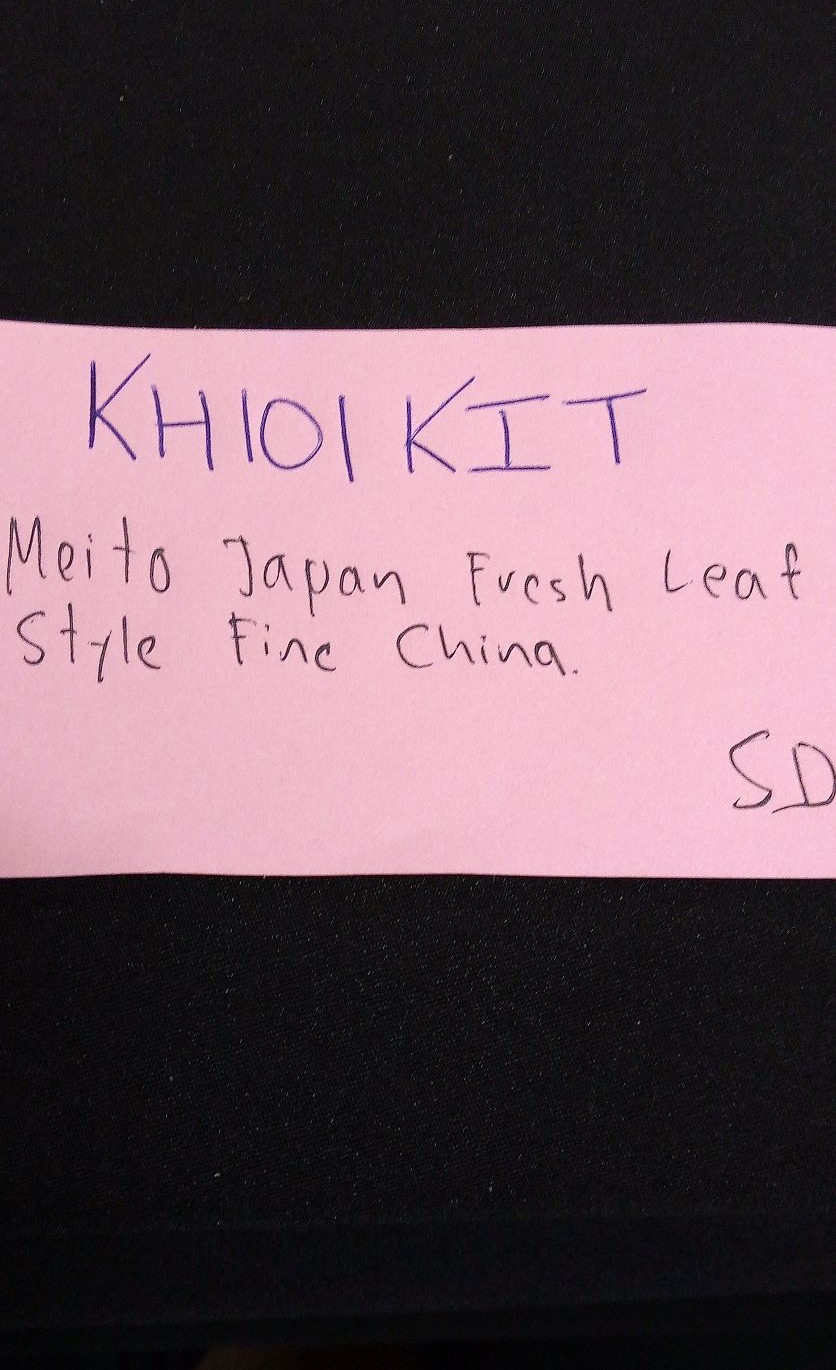 KH101 KIT
Meito Japan Fresh Leaf
Style Fine China.
SD